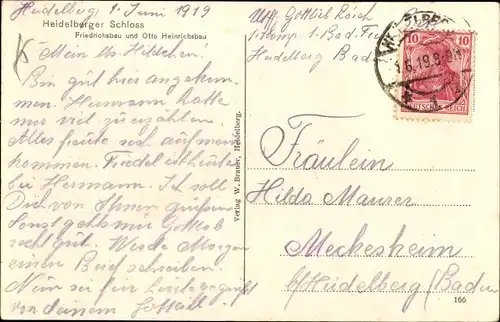 Heidelberg, 1. Juni 1919
Heidelberger Schloss
Friedrichsbau und Otto Heinrichsbau
Mein lb. Hildchen!
Bin gut hier angekom-
men. Hermann hatte
mir viel zu erzählen.
Alles freute sich auf mein
kommen. Friedel
bei Hermann. Ich soll
Dich von Ihnen grüßen
Sonst gehts mir Gottlob
recht gut. Werde Morgen
einen Brief schreiben.
Nun sei für
von deinem Gottlieb
Verlag W. Brauer, Heidelberg.
Gottlieb
1. Komp. 1. Bad.
Heidelberg Bad
10 10
DEUTSCHES REICH
Fräulein
Hilda Maurer
Meckesheim
b/Heidelberg (Baden
166